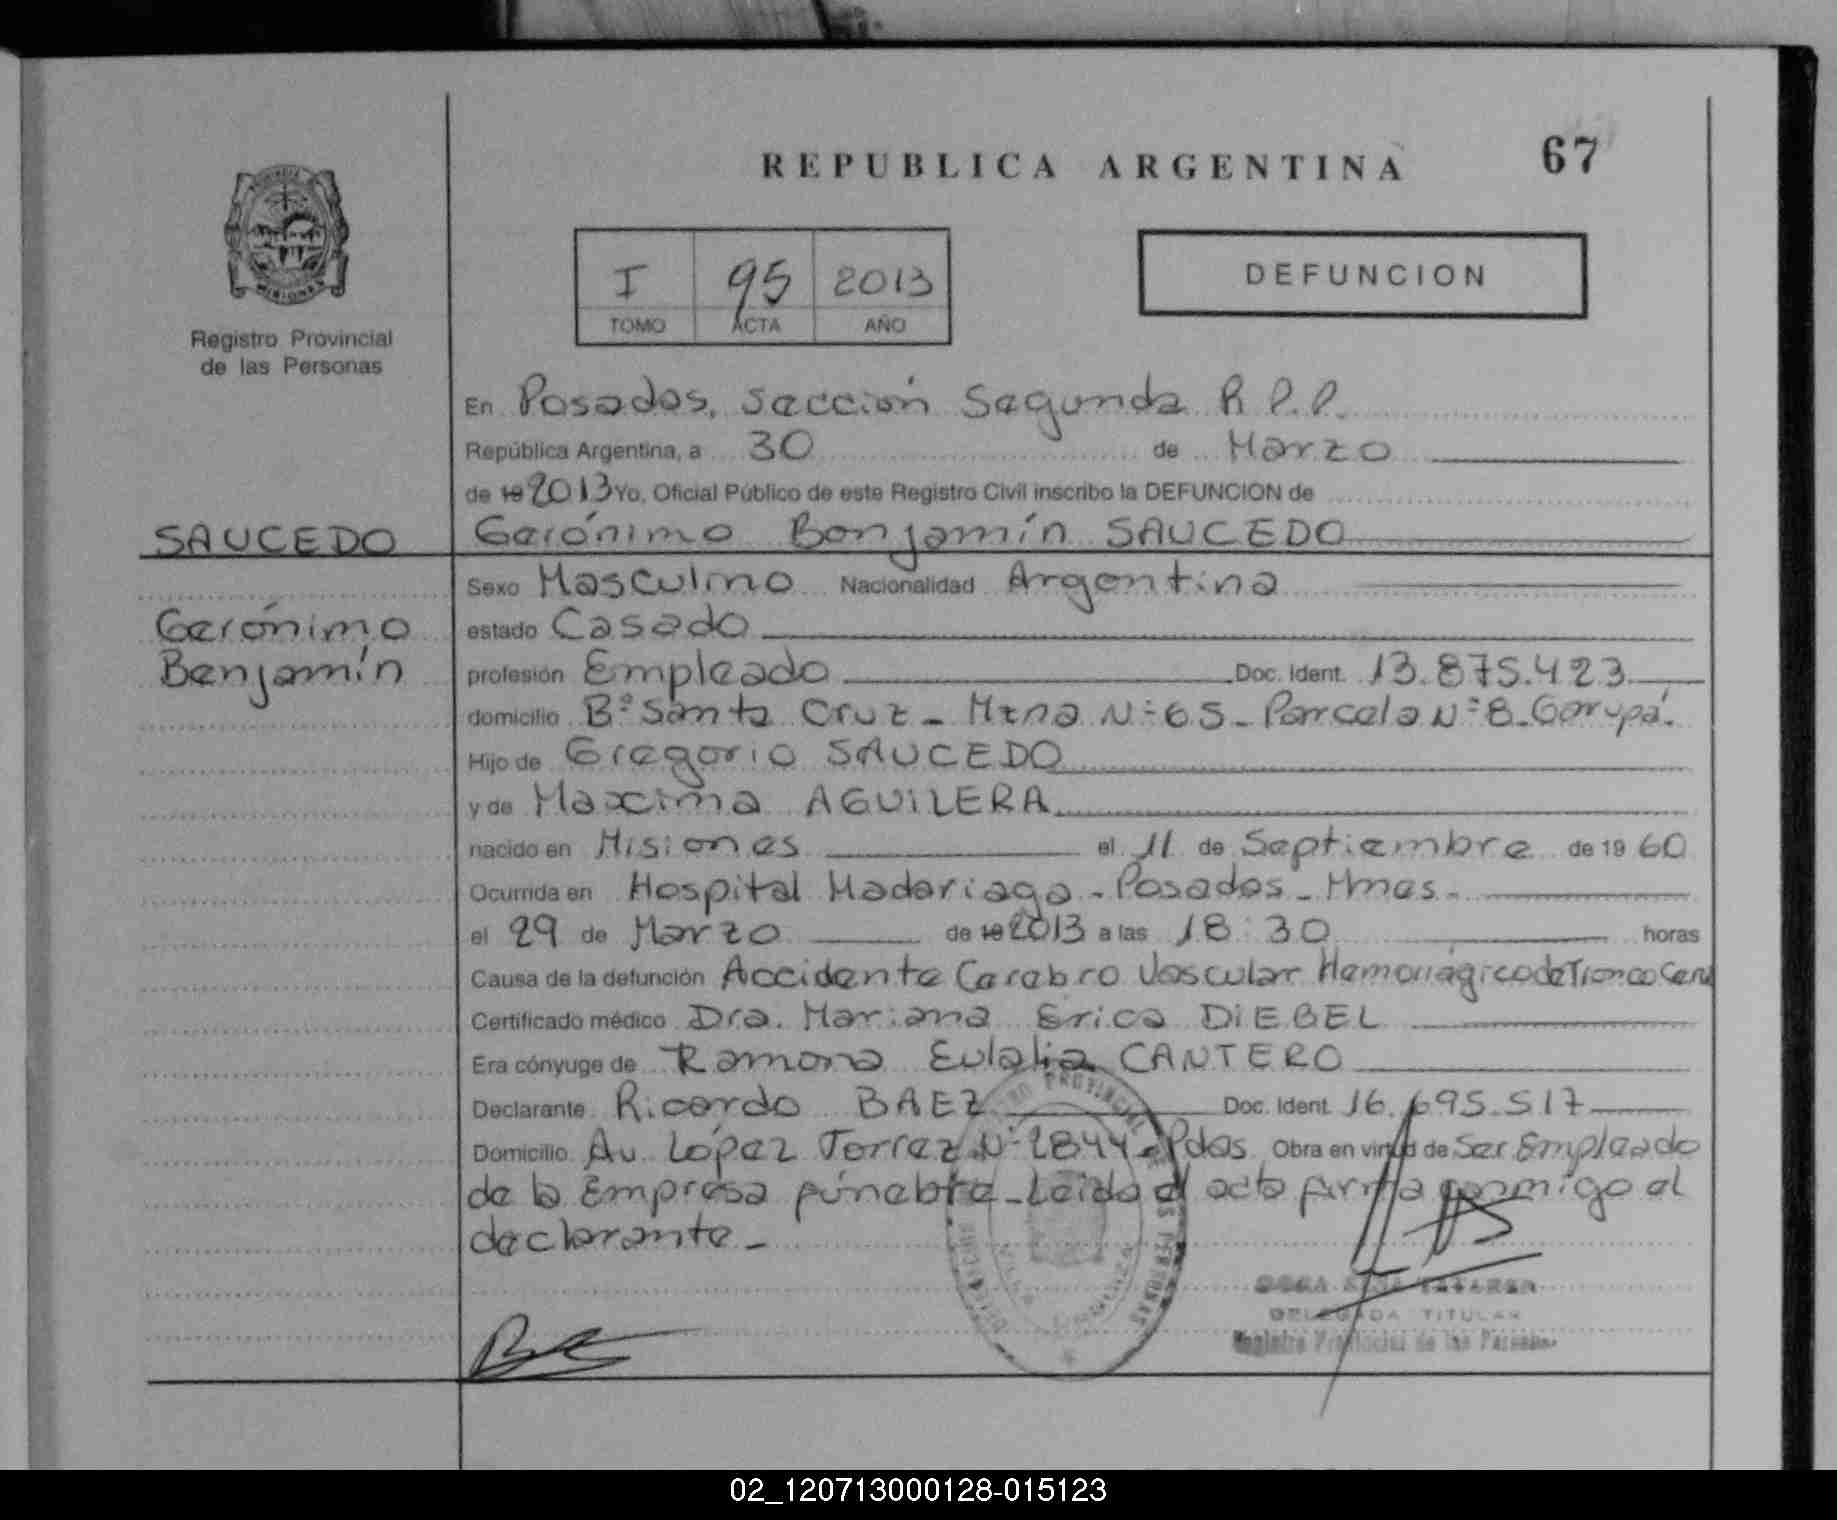 REPUBLICA ARGENTINA
67
I 95 2013
TOMO ACTA AÑO
DEFUNCION
PROVINCIA
MISIONES
Registro Provincial
de las Personas
En Posadas, Sección Segunda R.P.P.
República Argentina, a 30 de Marzo
de 19 2013 Yo, Oficial Público de este Registro Civil inscribo la DEFUNCION de
SAUCEDO
Gerónimo Benjamín SAUCEDO
Sexo Masculino Nacionalidad Argentina
Gerónimo
estado Casado
Benjamín
profesión Empleado Doc. Ident. 13.875.423
domicilio B° Santa Cruz - Mzna N° 65 - Parcela N° 8 - Garupá.
Hijo de Gregorio SAUCEDO
y de Maxima AGUILERA
nacido en Misiones el 11 de Septiembre de 19 60
Ocurrida en Hospital Madariaga - Posadas - Mnes -
el 29 de Marzo de 19 2013 a las 18:30 horas
Causa de la defunción Accidente Cerebro Vascular Hemorrágico de Tronco Cere
Certificado médico Dra. Mariana Erica DIEBEL
Era cónyuge de Ramona Eulalia CANTERO
Declarante Ricardo BAEZ Doc. Ident. 16.695.517
Domicilio Av. López Torrez N° 2844 - Pdas Obra en virtud de Ser Empleado
de la Empresa fúnebre - Leida el acta firma conmigo el
declarante -
DELEGADA TITULAR
Registro Provincial de las Personas
02_120713000128-015123